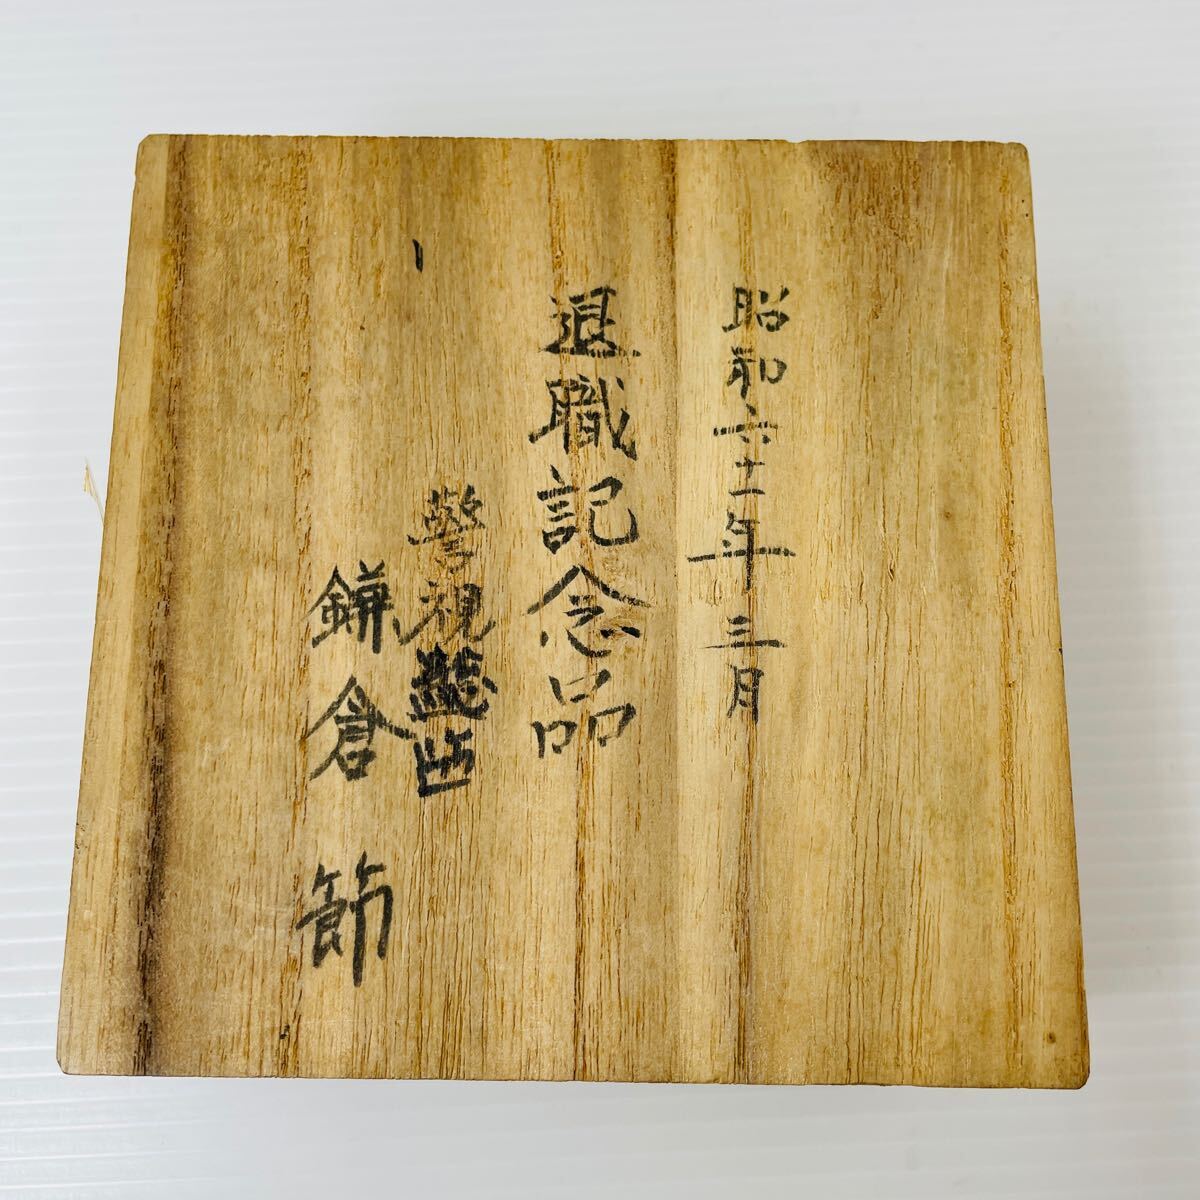 昭和六十一年三月
退職記念品
警視総監
鎌倉節